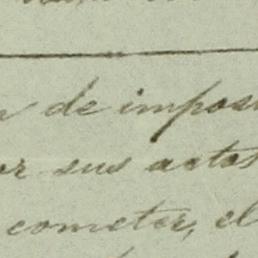 de impos
or sus actos
cometer, el